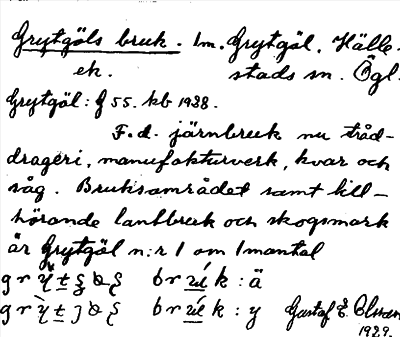 Grytgöls bruk. 1 m. Grytgöl, Hälle-
ek. stads sn. Ögl.
Grytgöl: G 55. kb 1938.
F.d. järnbruk nu tråd-
drageri, manufakturverk, kvar och
såg. Bruksområdet samt till-
hörande lantbruk och skogsmark
är Grytgöl n:r 1 om 1 mantal
: ä
: y Gustaf E.
1929.